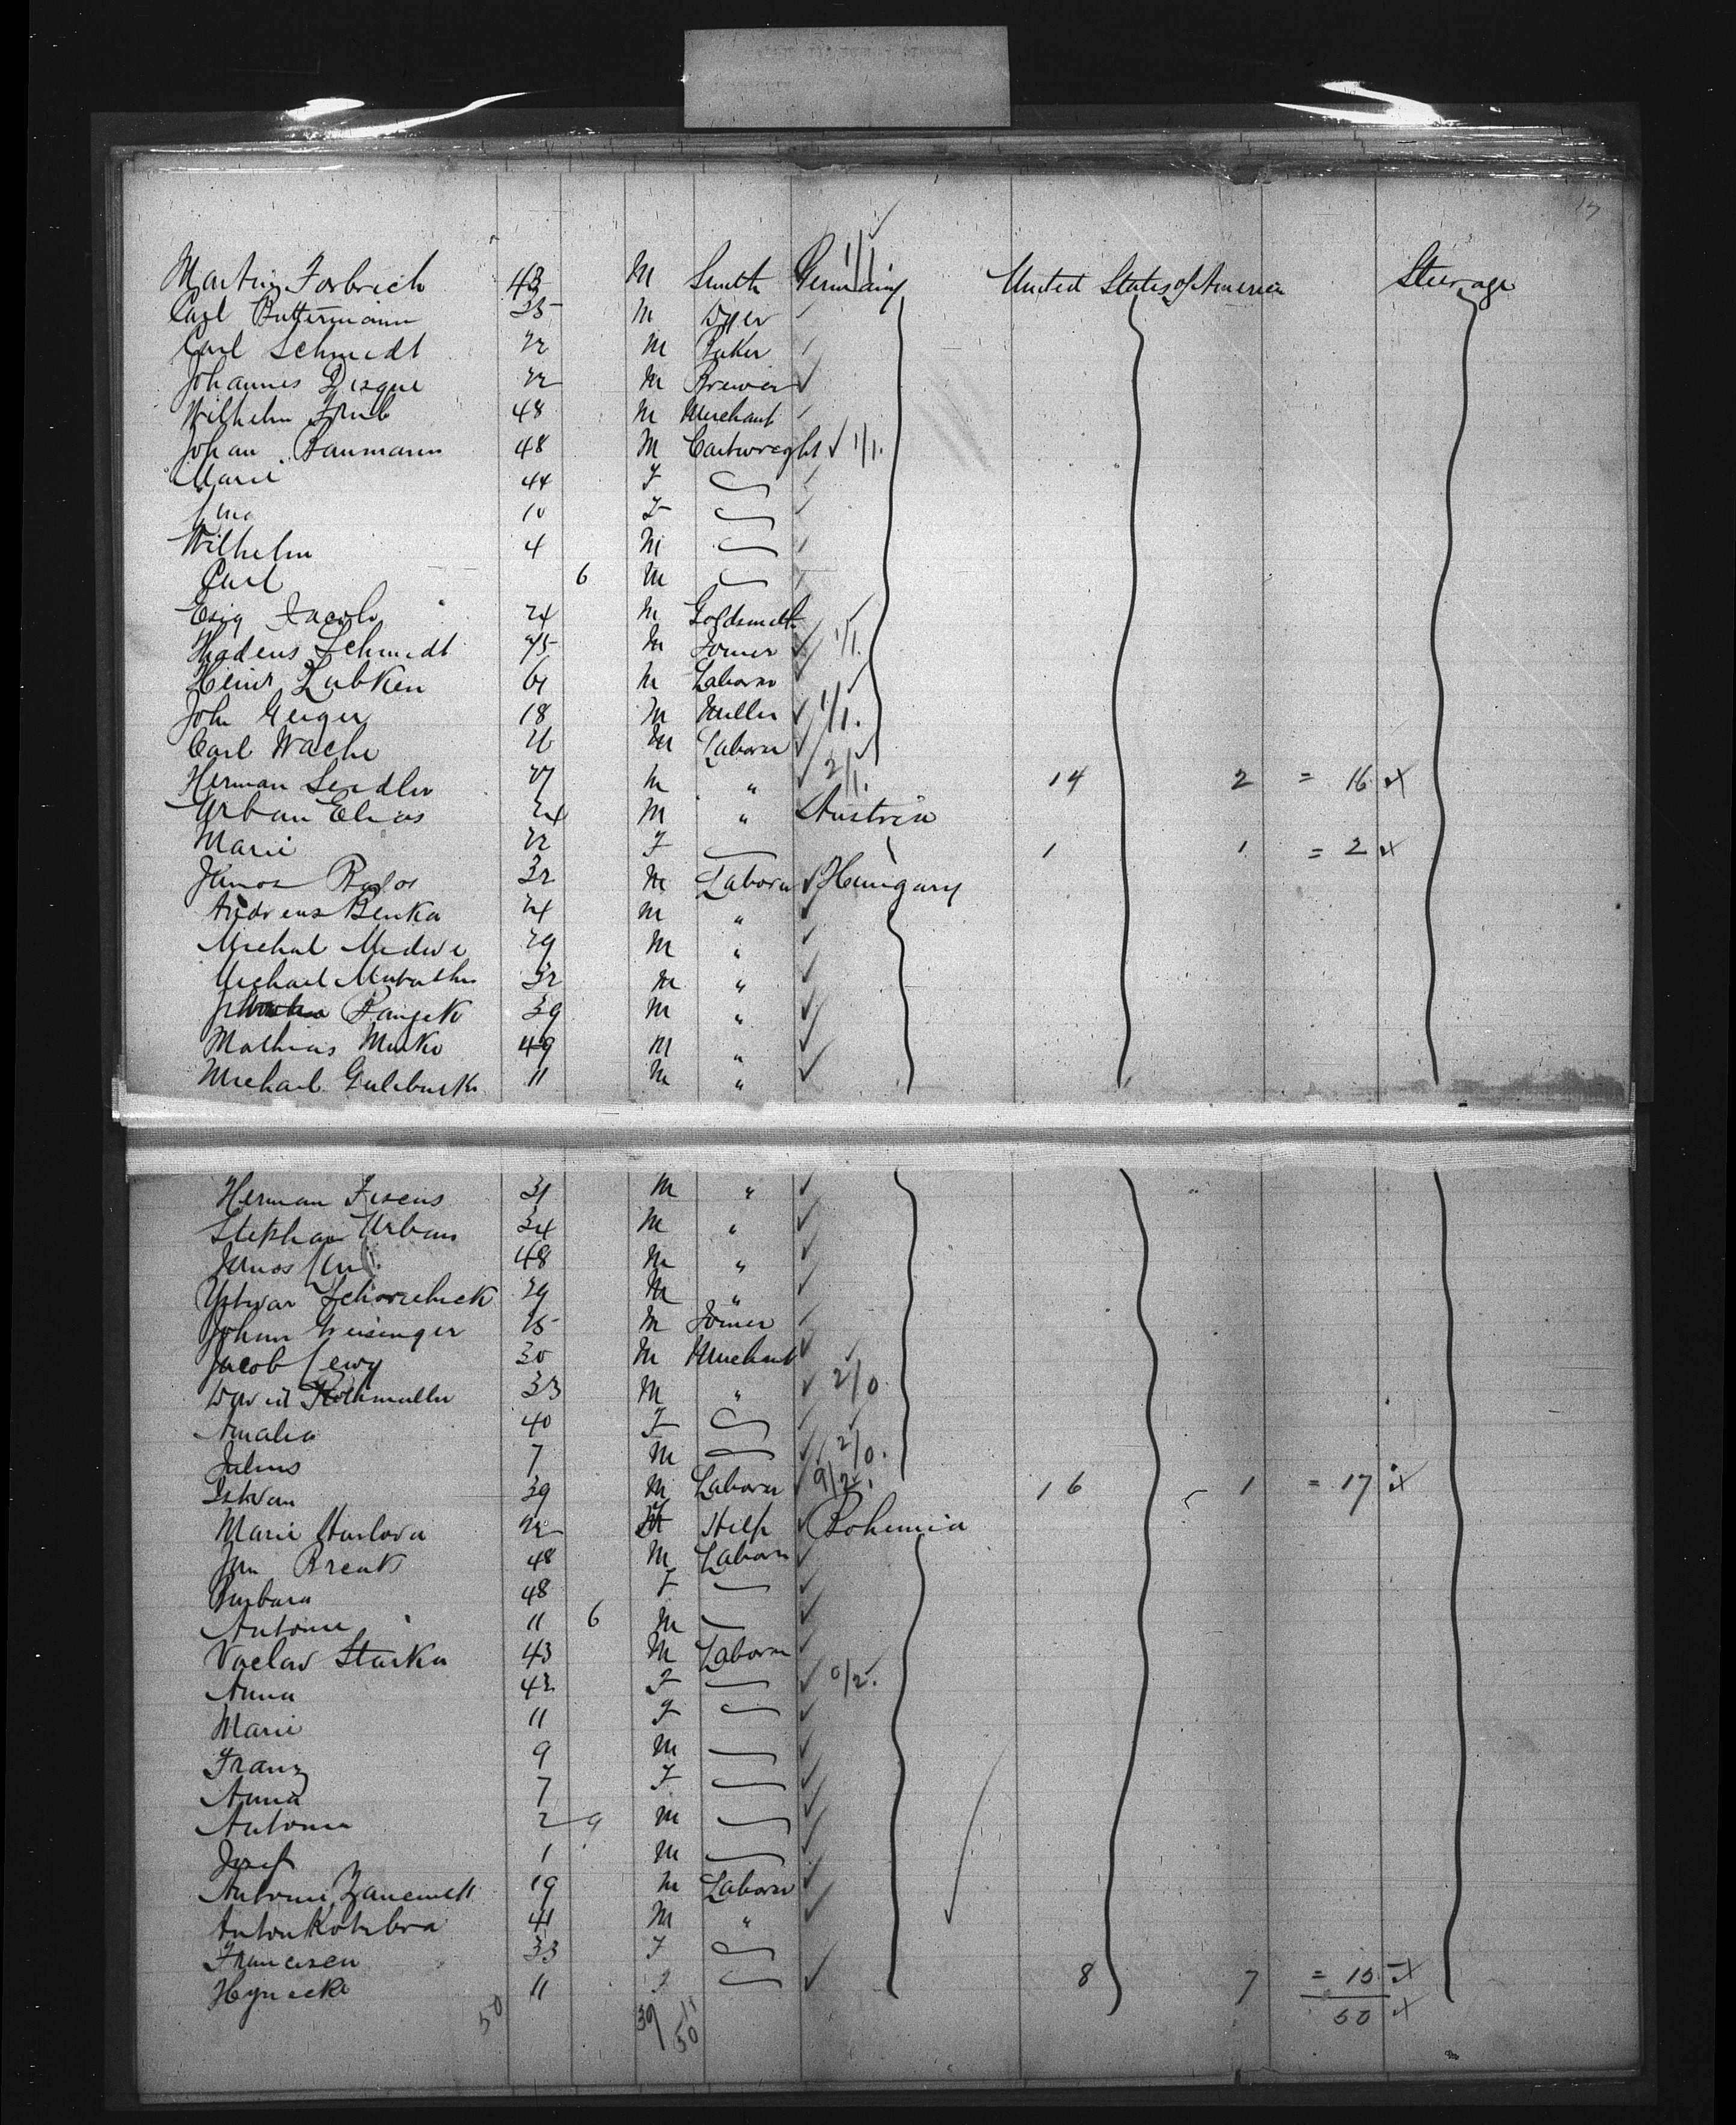 17
Martin Forbrich 43 M Smith Germany 1/1 United States of America Steerage
Carl Buttermann 35 M Dyer
Carl Schmidt 22 M Baker
Johannes Disque 22 M Brewer
Wilhelm 48 M Merchant
Johan Baumann 48 M Cartwright 1/1.
Marie 44 F
Lina 10 F
Wilhelm 4 M
Carl 6 M
Jacob 24 M Goldsmith
Schmidt 45 M Joiner 1/1.
Heinr Lubken 61 M Laborer
John Geiger 18 M Miller 1/1.
Carl Wache 26 M Laborer
Herman Sendler 27 M " 2/1. 14 2 = 16 x
Urban Elias 24 M " Austria
Marie 22 F 1 1 = 2 x
Janos 32 M Laborer Hungary
Andreas Benka 24 M "
Michal Medwe 29 M "
Michael 32 M "
39 M "
Mathias Musko 49 M "
Michael 11 M "
Herman 31 M "
Stephan Urban 34 M "
Janos 48 M "
29 M "
Johann Weisinger 25 M Joiner
Jacob Lewy 30 M Merchant
David 33 M " 2/0
Amalia 40 F
Julius 7 M 2/0.
Istvan 39 M Laborer 9/2. 16 1 = 17 x
Marie 22 F Help Bohemia
Jan 48 M Laborer
Barbara 48 F
Antonie 11 6 M
Vaclav Starka 43 M Laborer
Anna 42 F 0/2.
Marie 11 F
Franz 9 M
Anna 7 F
Antonin 2 9 M
Josef 1 M
Antonin 19 M Laborer
Anton Kotrbra 41 M "
33 F
11 F 8 7 = 15 x
50 39 11 50 50 x